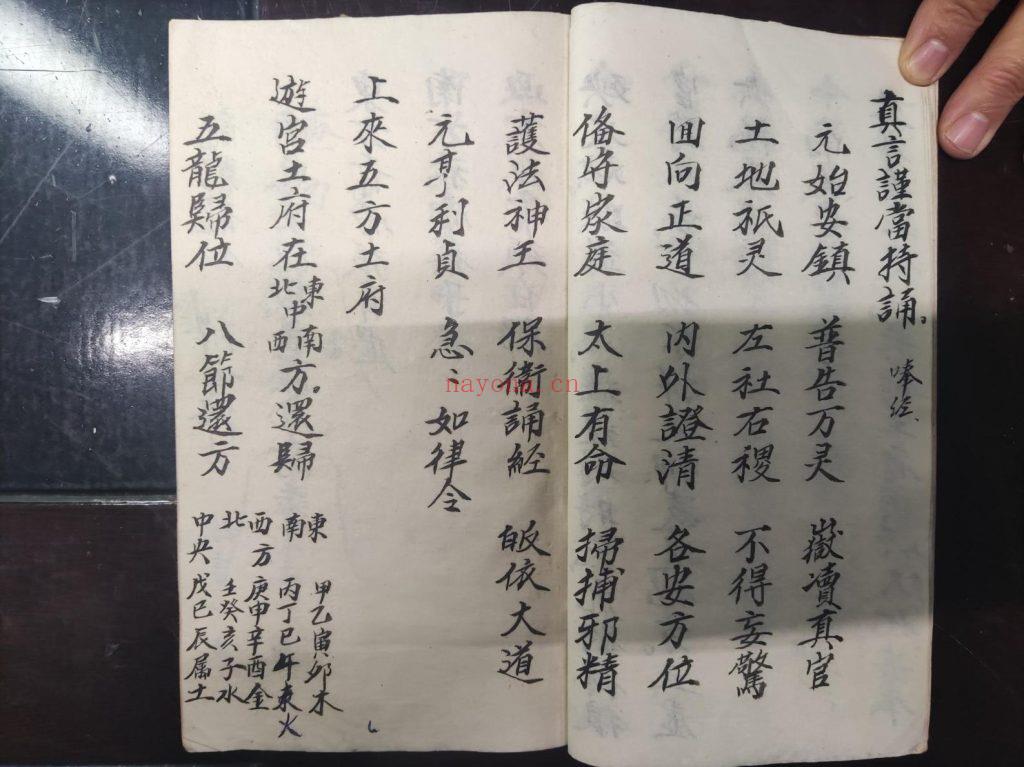 真言謹當持誦。 唪经
元始安鎮 普告万灵 嶽瀆真官
土地祇灵 左社右稷 不得妄驚
回向正道 内外證清 各安方位
俻守家庭 太上有命 掃捕邪精
護法神王 保衛誦經 皈依大道
元亨利貞 急〻如律令
上來五方土府
遊宮土府在東南中西北方。還歸
五龍歸位 八節還方
東 甲乙寅卯木
南 丙丁巳午未火
西方庚申辛酉金
北 壬癸亥子水
中央戊己辰属土
nayona.cn